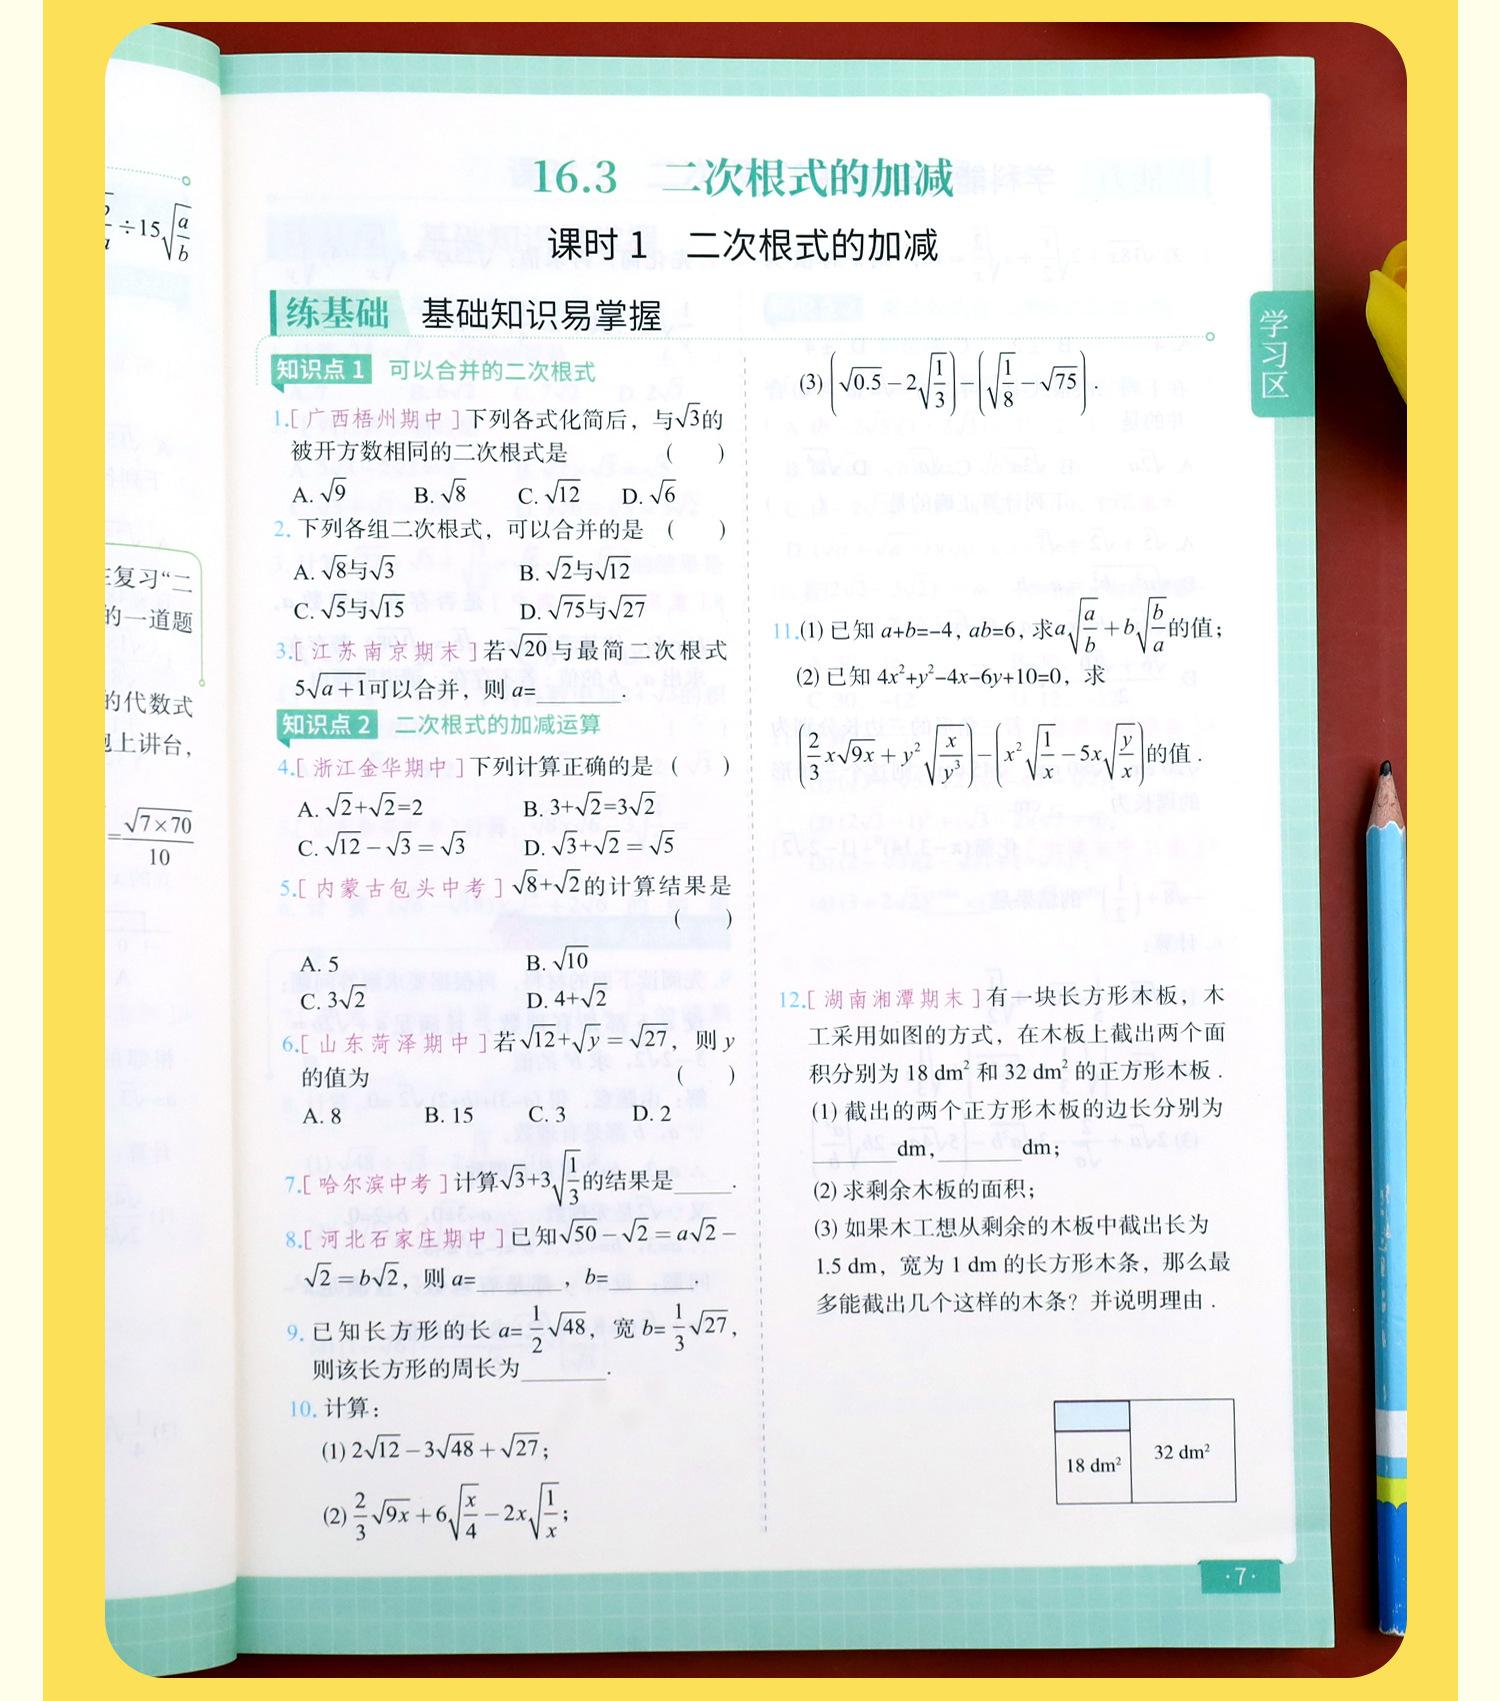 ÷15√(a/b)
在复习“二
的一道题
的代数式
跑上讲台，
=√(7×70)/10
16.3 二次根式的加减
课时1 二次根式的加减
练基础 基础知识易掌握
知识点1 可以合并的二次根式
1.[广西梧州期中]下列各式化简后，与√3的
被开方数相同的二次根式是 ( )
A. √9 B. √8 C. √12 D. √6
2. 下列各组二次根式，可以合并的是 ( )
A. √8与√3 B. √2与√12
C. √5与√15 D. √75与√27
3.[江苏南京期末]若√20与最简二次根式
5√(a+1)可以合并，则 a=______.
知识点2 二次根式的加减运算
4.[浙江金华期中]下列计算正确的是 ( )
A. √2+√2=2 B. 3+√2=3√2
C. √12-√3=√3 D. √3+√2=√5
5.[内蒙古包头中考]√8+√2的计算结果是
( )
A. 5 B. √10
C. 3√2 D. 4+√2
6.[山东菏泽期中]若√12+√y=√27，则 y
的值为 ( )
A. 8 B. 15 C. 3 D. 2
7.[哈尔滨中考]计算√3+3√(1/3)的结果是____.
8.[河北石家庄期中]已知√50-√2=a√2-
√2=b√2，则 a=______，b=______.
9. 已知长方形的长 a=1/2√48，宽 b=1/3√27，
则该长方形的周长为______.
10. 计算：
(1) 2√12-3√48+√27；
(2) 2/3√(9x)+6√(x/4)-2x√(1/x)；
(3) (√0.5-2√(1/3))-(√(1/8)-√75).
11.(1) 已知 a+b=-4，ab=6，求a√(a/b)+b√(b/a)的值；
(2) 已知 4x²+y²-4x-6y+10=0，求
(2/3x√(9x)+y²√(x/y³))-(x²√(1/x)-5x√(y/x))的值.
12.[湖南湘潭期末]有一块长方形木板，木
工采用如图的方式，在木板上截出两个面
积分别为 18 dm² 和 32 dm² 的正方形木板.
(1) 截出的两个正方形木板的边长分别为
______dm，______dm；
(2) 求剩余木板的面积；
(3) 如果木工想从剩余的木板中截出长为
1.5 dm，宽为 1 dm 的长方形木条，那么最
多能截出几个这样的木条？并说明理由.
18 dm² 32 dm²
学习区
·7·